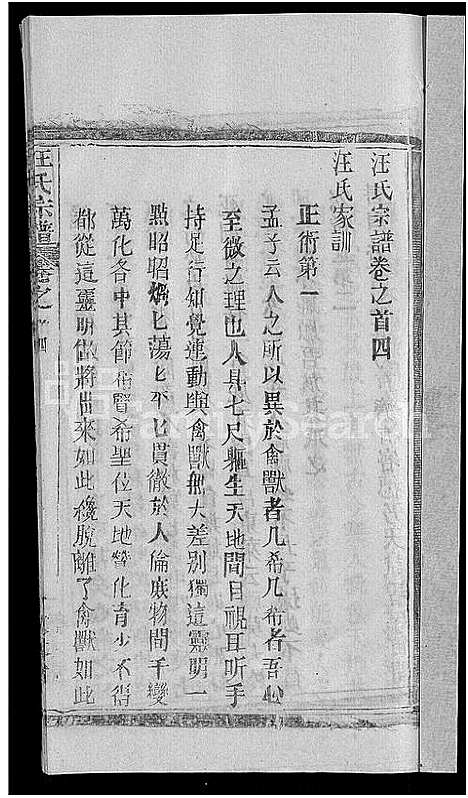 汪氏宗譜卷之首四
汪氏家訓
正術第一
孟子云人之所以異於禽獸者几希几希者吾心
至微之理也人具七尺軀生天地間目視耳听手
持足行知覺運動與禽獸無大差別獨這靈明一
點昭昭燭匕蕩匕平匕貫徹於人倫庶物間千變
萬化各中其節希賢希聖位天地贊化育少不得
都從這靈明做將出來如此纔脫離了禽獸如此
汪氏宗譜 卷之首四